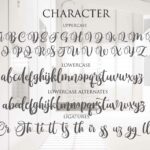 CHARACTER
UPPERCASE
A B C D E F G H I J K L M
N O P Q R S T U V W X Y Z
LOWERCASE
abcdefghijklmnopqrstuvwxyz
LOWERCASE ALTERNATES
abcdefghijklmnopqrstuvwxyz
LIGATURES